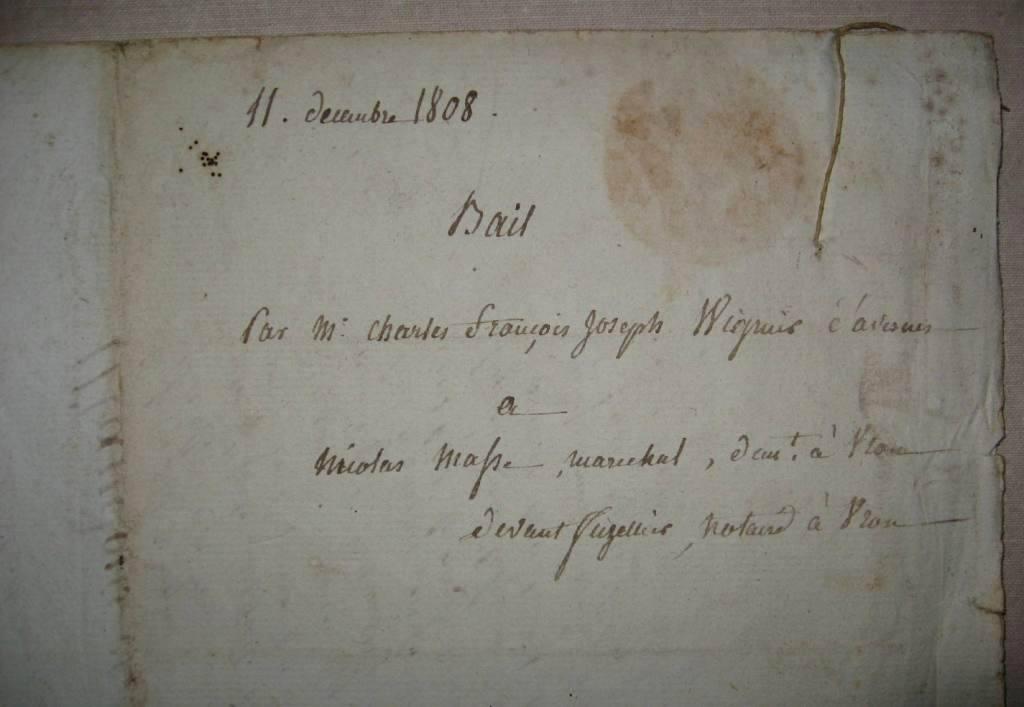 11. decembre 1808.
Bail
Par Mr. Charles françois Joseph Wignier d'avesnes
a
Nicolas Masse, marechal, demt. à Vron
devant fuzellier, notaire à Vron